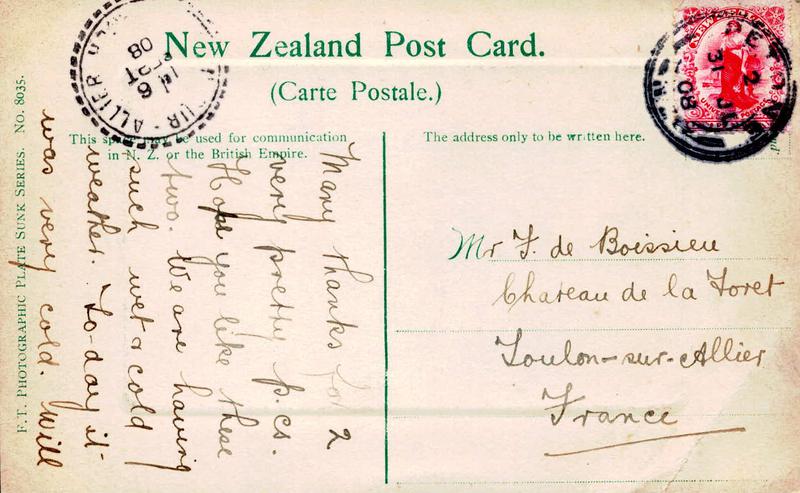 New Zealand Post Card.
(Carte Postale.)
This space may be used for communication
in N. Z. or the British Empire.
The address only to be written here.
F.T. PHOTOGRAPHIC PLATE SUNK SERIES. No. 8035.
Many thanks for 2
very pretty p.cs.
Hope you like these
two. We are having
such wet & cold
weather. To-day it-
was very cold. Will
Mr F. de Boissieu
Chateau de la Foret
Toulon-sur-Allier
France
PETONE
2
31 JL
08
UR-ALLIER
6
08
NEW